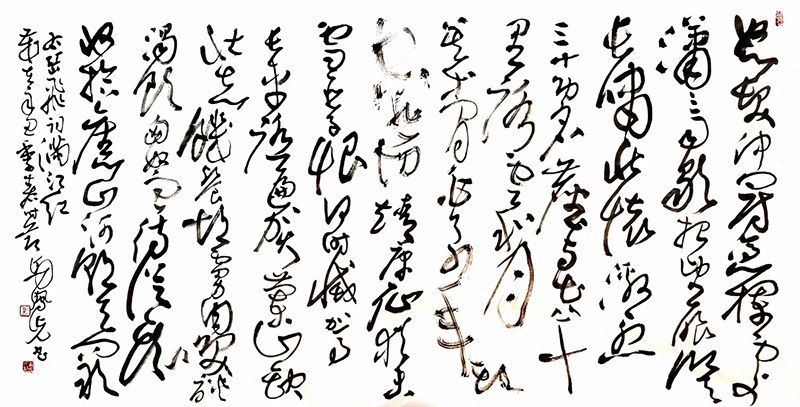 怒髮沖冠憑欄處
瀟瀟雨歇抬望眼仰天
長嘯壯懷激烈
三十功名塵與土八千
里路雲和月
莫等閒白了少年頭
空悲切靖康恥猶未
雪臣子恨何時滅駕
長車踏破賀蘭山缺
壯志飢餐胡虜肉笑談
渴飲匈奴血待從頭
收拾舊山河朝天闕
右岳飛詞滿江紅